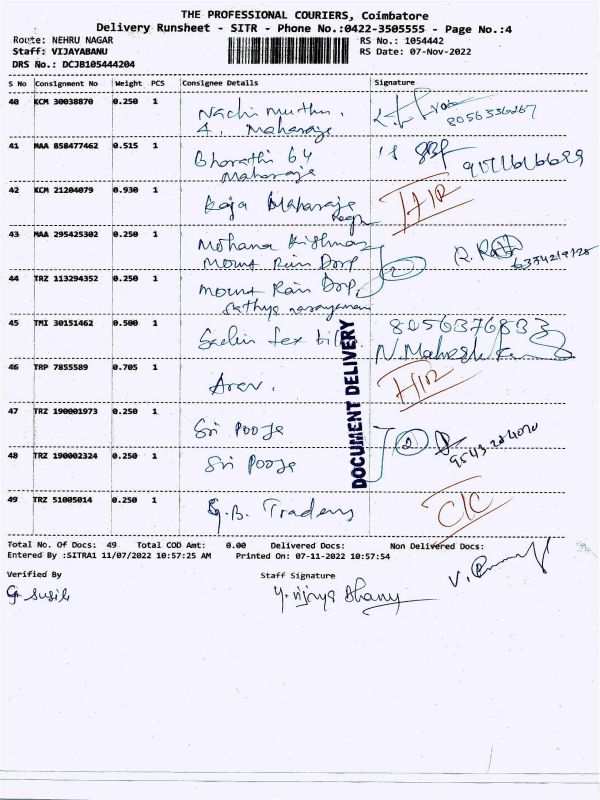 THE PROFESSIONAL COURIERS, Coimbatore
Delivery Runsheet - SITR - Phone No.:0422-3505555 - Page No.:4
Route: NEHRU NAGAR
RS No.: 1054442
Staff: VIJAYABANU
RS Date: 07-Nov-2022
DRS No.: DCJB105444204
S No Consignment No Weight PCS Consignee Details Signature
40 KCM 30038870 0.250 1 Nachi muthu,
4, Maharaja
8056336267
41 MAA 858477462 0.515 1 Bharathi 64
Maharaja
42 KCM 21204079 0.930 1 Raja Maharaja
43 MAA 295425302 0.250 1 Mohana Krishnan
Mount Rain Drop
2
44 TRZ 113294352 0.250 1 Mount Rain Drop,
Sathya narayanan
45 TMI 30151462 0.500 1 8056376833
N. Mahesh
46 TRP 7855589 0.705 1
47 TRZ 190001973 0.250 1 Sri Pooja
2
48 TRZ 190002324 0.250 1 Sri Pooja
49 TRZ 51005014 0.250 1 G.B. Traders C/C
DOCUMENT DELIVERY
Total No. Of Docs: 49 Total COD Amt: 0.00 Delivered Docs: Non Delivered Docs:
Entered By :SITRA1 11/07/2022 10:57:25 AM Printed On: 07-11-2022 10:57:54
Verified By Staff Signature
G. Susila Y. Vijaya Bhanu